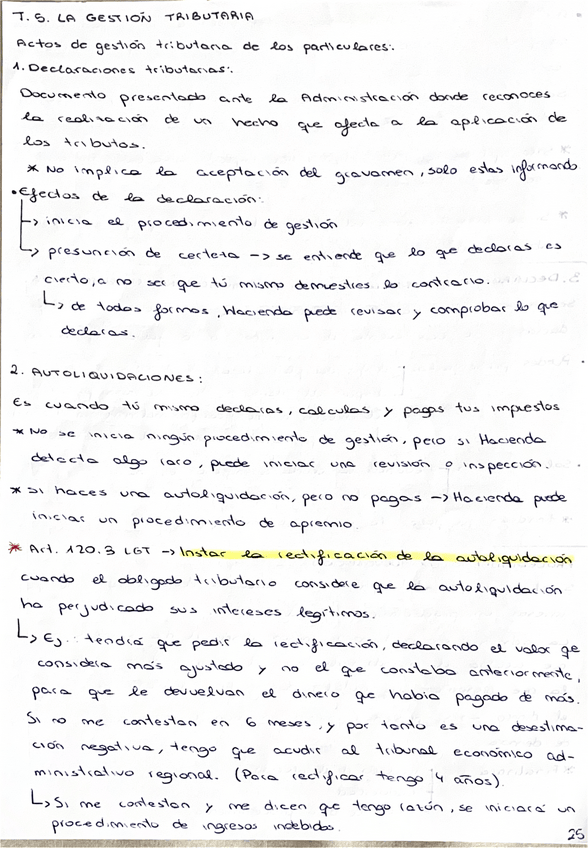 T. 5. LA GESTIÓN TRIBUTARIA
Actos de gestión tributaria de los particulares:
1. Declaraciones tributarias:
Documento presentado ante la Administración donde reconoces
la realización de un hecho que afecta a la aplicación de
los tributos.
* No implica la aceptación del gravamen, solo estas informando
• Efectos de la declaración:
↳ inicia el procedimiento de gestión
↳ presunción de certeza → se entiende que lo que declaras es
cierto, a no ser que tú mismo demuestres lo contrario.
↳ de todas formas, Hacienda puede revisar y comprobar lo que
declaras.
2. AUTOLIQUIDACIONES:
Es cuando tú mismo declaras, calculas y pagas tus impuestos
* No se inicia ningún procedimiento de gestión, pero si Hacienda
detecta algo raro, puede iniciar una revisión o inspección.
* Si haces una autoliquidación, pero no pagas → Hacienda puede
iniciar un procedimiento de apremio.
* Art. 120.3 LGT → Instar la rectificación de la autoliquidación
cuando el obligado tributario considere que la autoliquidación
ha perjudicado sus intereses legítimos.
↳ Ej.: tendrá que pedir la rectificación, declarando el valor qe
considera más ajustado y no el que constaba anteriormente,
para que le devuelvan el dinero qe había pagado de más.
Si no me contestan en 6 meses, y por tanto es una desestima-
ción negativa, tengo que acudir al tribunal económico ad-
ministrativo regional. (Para rectificar tengo 4 años).
↳ Si me contestan y me dicen qe tengo razón, se iniciará un
procedimiento de ingresos indebidos.
25